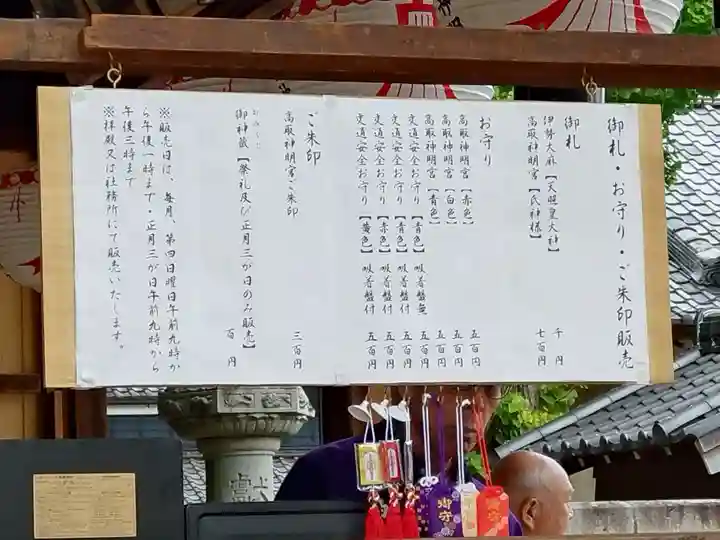 御札・お守り・ご朱印販売
御札
伊勢大麻【天照皇大神】 千円
高取神明宮【氏神様】 七百円
お守り
高取神明宮【赤色】 五百円
高取神明宮【白色】 五百円
高取神明宮【青色】 五百円
交通安全お守り【青色】吸着盤無 五百円
交通安全お守り【青色】吸着盤付 五百円
交通安全お守り【赤色】吸着盤付 五百円
交通安全お守り【黄色】吸着盤付 五百円
ご朱印
高取神明宮ご朱印 三百円
御神籤【祭礼及び正月三が日のみ販売】 百円
おみくじ
※販売日は、毎月、第四日曜日午前九時か
ら午後一時まで・正月三が日午前九時から
午後三時まで
※拝殿又は社務所にて販売いたします。
御守
御守